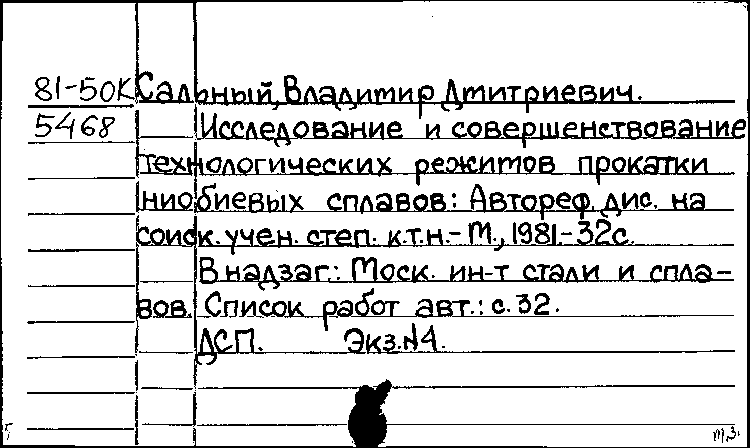 81-50К Сальный, Владимир Дмитриевич.
5468 Исследование и совершенствование
технологических режимов прокатки
ниобиевых сплавов: Автореф. дис. на
соиск. учен. степ. к.т.н. - М., 1981.-32с.
В надзаг.: Моск. ин-т стали и спла-
вов. Список работ авт.: с. 32.
ДСП. Экз.№4.
т.з.